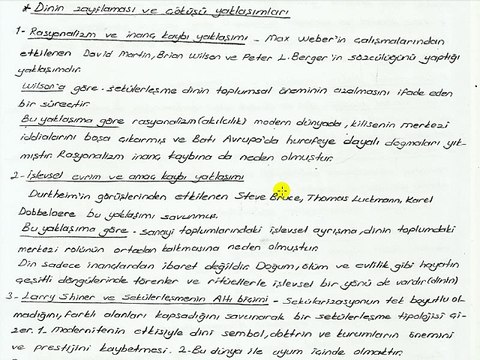 * Dinin zayıflaması ve çöküşü yaklaşımları
1- Rasyonalizm ve inanç kaybı yaklaşımı - Max Weber'in çalışmalarından
etkilenen David Martin, Brian Wilson ve Peter L. Berger'in sözcülüğünü yaptığı
yaklaşımdır.
Wilson'a göre - sekülerleşme dinin toplumsal öneminin azalmasını ifade eden
bir süreçtir.
Bu yaklaşıma göre rasyonalizm (akılcılık) modern dünyada, kilisenin merkezi
iddialarını boşa çıkarmış ve Batı Avrupa'da hurafeye dayalı dogmaları yık-
mıştır. Rasyonalizm inanç kaybına da neden olmuştur.
2- İşlevsel evrim ve amaç kaybı yaklaşımı
Durkheim'in görüşlerinden etkilenen Steve Bruce, Thomas Luckmann, Karel
Dobbelaere bu yaklaşımı savunmuş.
Bu yaklaşıma göre - sanayi toplumlarındaki işlevsel ayrışma, dinin toplumdaki
merkezi rolünün ortadan kalkmasına neden olmuştur.
Din sadece inançlardan ibaret değildir. Doğum, ölüm ve evlilik gibi hayatın
çeşitli döngülerinde törenler ve ritüellerle işlevsel bir yönü de vardır (dinin)
3- Larry Shiner ve Sekülerleşmenin Altı biçimi - Sekülarizasyonun tek boyutlu ol-
madığını, farklı alanları kapsadığını savunarak bir sekülerleşme tipolojisi çi-
zer. 1. Modernitenin etkisiyle dini sembol, doktrin ve kurumların önemini
ve prestijini kaybetmesi. 2- Bu dünya ile uyum içinde olmaktır.